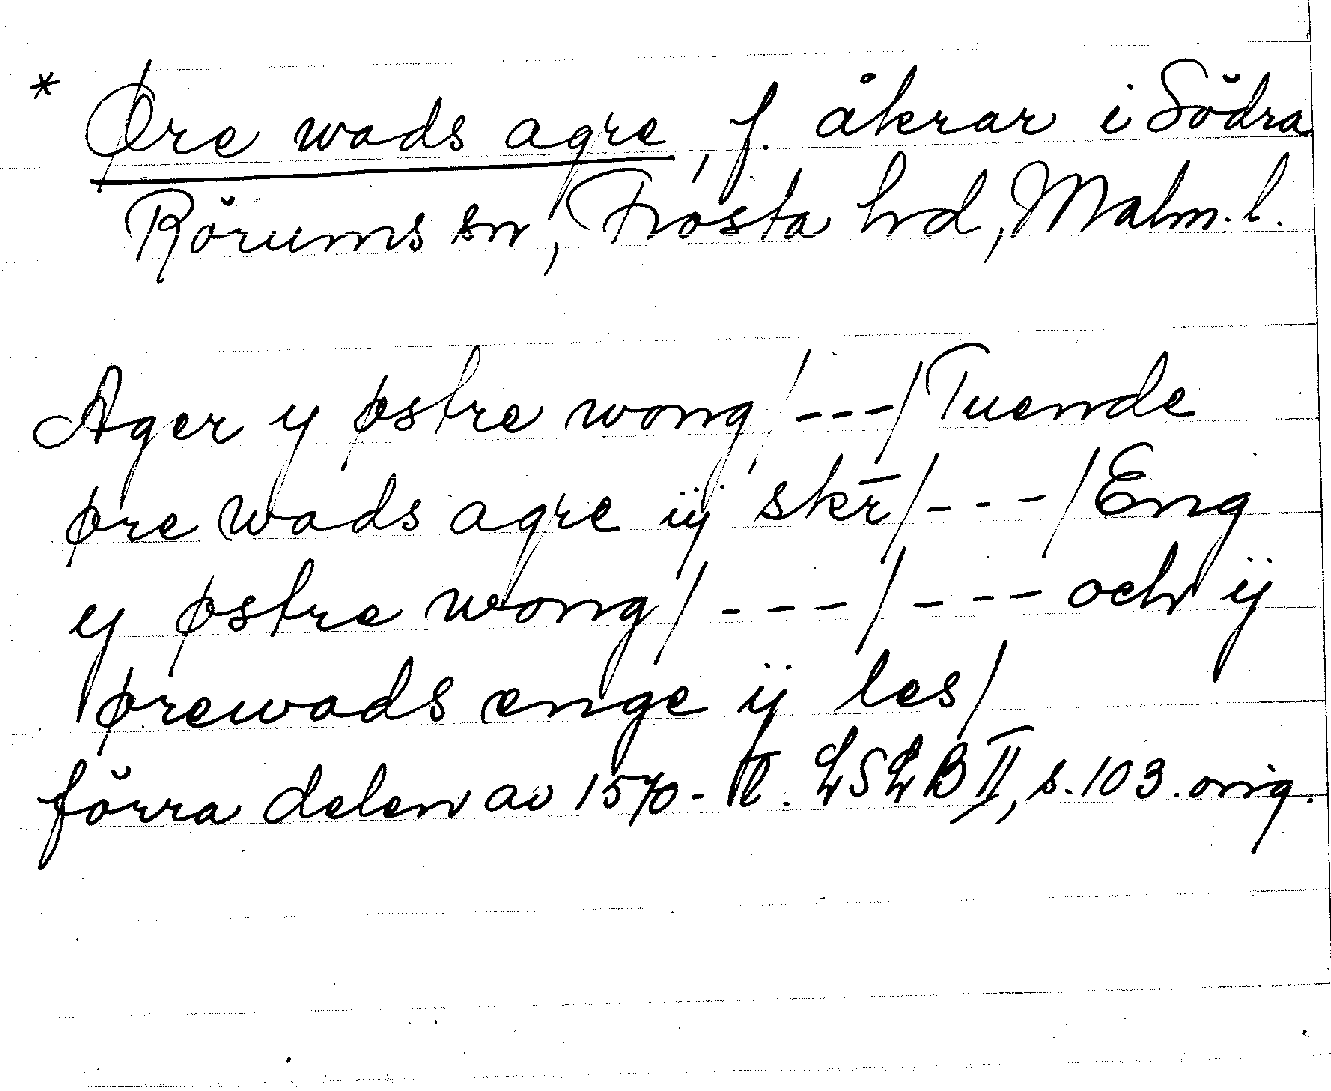 * Øre wads agre, f. åkrar i Södra
Rörums sn, Frosta hd, Malm. l.
Ager y østre wong / --- / Tuende
øre wads agre iij skr̄ / --- / Eng
y østre wong / --- / --- och ÿ
ørewads enge ÿ les /
förra delen av 1570-t. LSLB II, s. 103. orig.